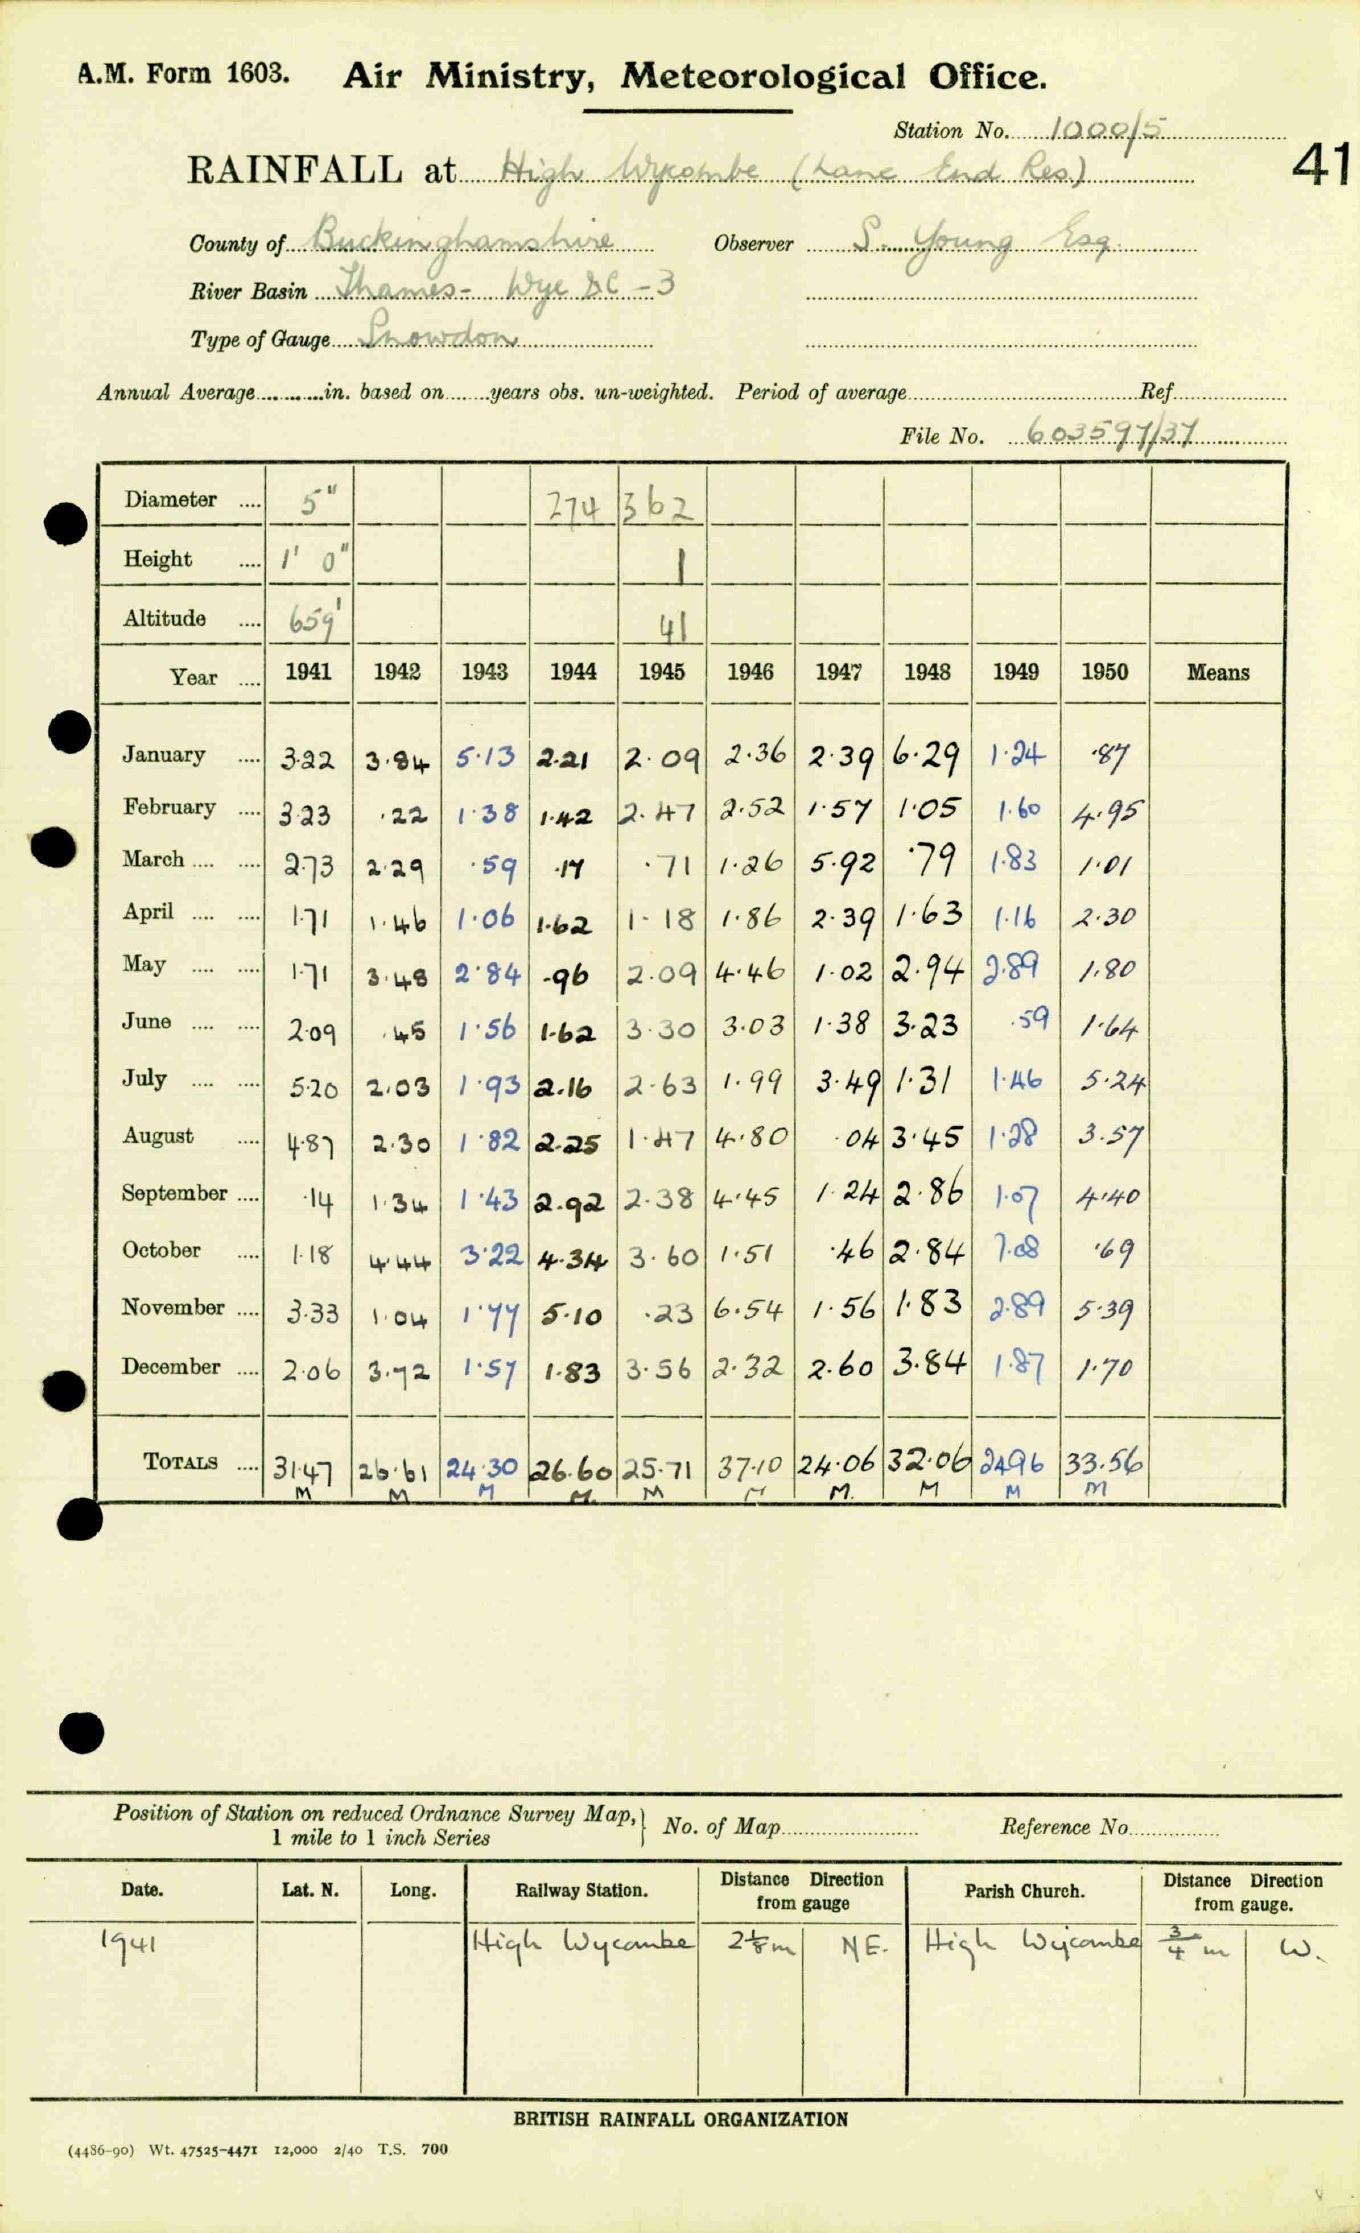 A.M. Form 1603. Air Ministry, Meteorological Office.
Station No. 1000/5
RAINFALL at High Wycombe (Lane End Res.)
41
County of Buckinghamshire Observer S. Young Esq.
River Basin Thames - Wye &C - 3
Type of Gauge Snowdon
Annual Average in. based on years obs. un-weighted. Period of average Ref
File No. 603597/37
Diameter 5" 274 362
Height 1' 0" 1
Altitude 659' 41
Year 1941 1942 1943 1944 1945 1946 1947 1948 1949 1950 Means
January 3.22 3.84 5.13 2.21 2.09 2.36 2.39 6.29 1.24 .87
February 3.23 .22 1.38 1.42 2.47 2.52 1.57 1.05 1.60 4.95
March 2.73 2.29 .59 .17 .71 1.26 5.92 .79 1.83 1.01
April 1.71 1.46 1.06 1.62 1.18 1.86 2.39 1.63 1.16 2.30
May 1.71 3.48 2.84 .96 2.09 4.46 1.02 2.94 2.89 1.80
June 2.09 .45 1.56 1.62 3.30 3.03 1.38 3.23 .59 1.64
July 5.20 2.03 1.93 2.16 2.63 1.99 3.49 1.31 1.46 5.24
August 4.87 2.30 1.82 2.25 1.47 4.80 .04 3.45 1.28 3.57
September .14 1.34 1.43 2.92 2.38 4.45 1.24 2.86 1.07 4.40
October 1.18 4.44 3.22 4.34 3.60 1.51 .46 2.84 7.08 .69
November 3.33 1.04 1.77 5.10 .23 6.54 1.56 1.83 2.89 5.39
December 2.06 3.72 1.57 1.83 3.56 2.32 2.60 3.84 1.87 1.70
TOTALS 31.47 26.61 24.30 26.60 25.71 37.10 24.06 32.06 24.96 33.56
M M M M. M M M. M M M
Position of Station on reduced Ordnance Survey Map, 1 mile to 1 inch Series } No. of Map Reference No.
Date. Lat. N. Long. Railway Station. Distance Direction from gauge Parish Church. Distance Direction from gauge.
1941 High Wycombe 2 1/8 m NE. High Wycombe 3/4 m W.
BRITISH RAINFALL ORGANIZATION
(4486-90) Wt. 47525-4471 12,000 2/40 T.S. 700